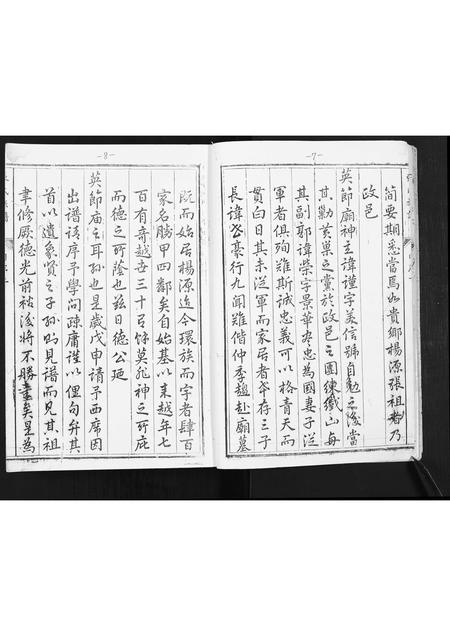 -7-
简要期悉當焉如貴鄉楊源張祖者乃
政邑
英節廟神主諱謹字美信號自勉之後當
其勦黄巢之黨於政邑之團練鐵山每
其副郭諱榮字景華盡忠為國妻子從
軍者俱殉難斯誠忠義可以格青天而
貫白日其未從軍而家居者爷存三子
長諱豪行九聞難偕仲季趨赴廟墓
-8-
既而始居楊源迄今環族而宇者肆百
家名勝甲四鄰矣自始基以来越年七
百有奇越世三十餘莫非神之所庇
而德之所蔭也兹日德公廵
英節庙之耳孙也是歲戊申请予西席因
出譜请序予學問疎庸謹以俚句弁其
首以遗象賢之子孙時見譜而見其祖
聿修厥德光前裕後將不勝書矣是為